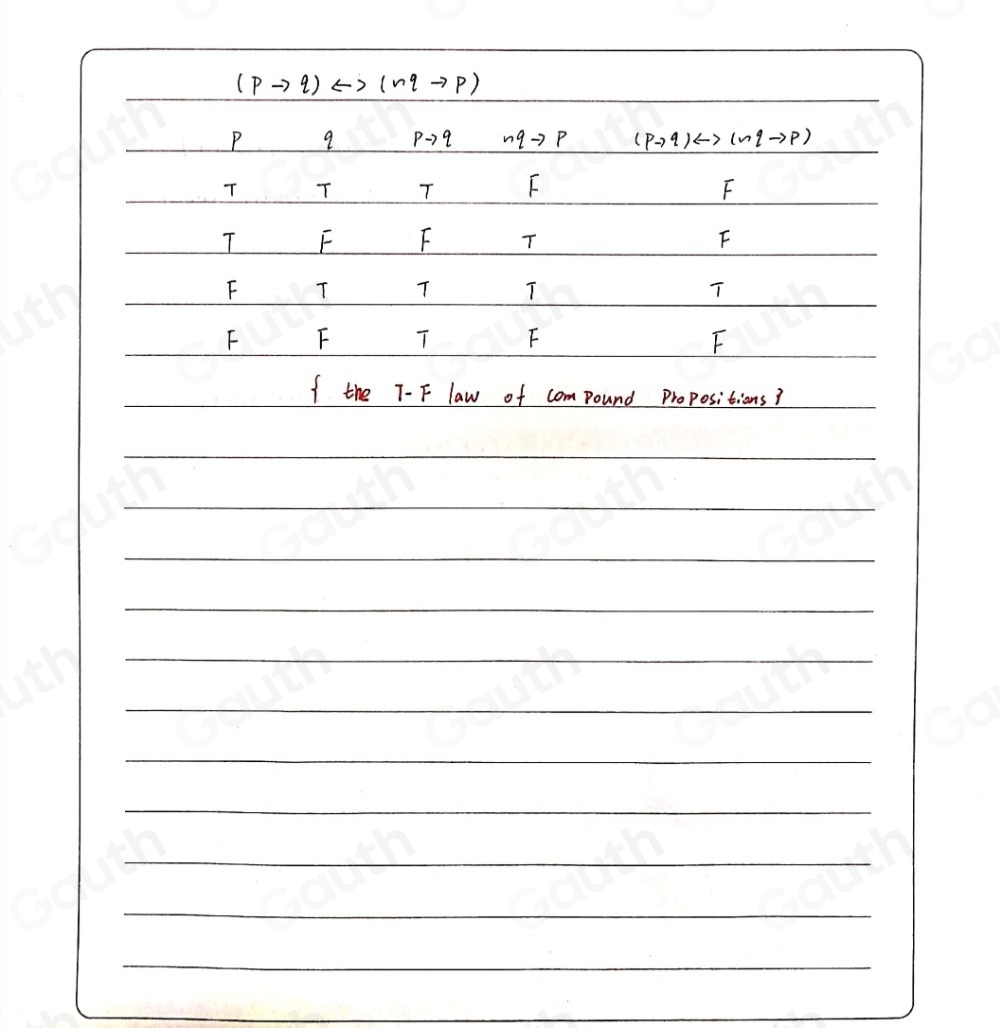 (P → q) <-> (nq → P)
P q P→q nq→P (P→q)<->(nq→P)
T T T F F
T F F T F
F T T T T
F F T F F
{ the T-F law of compound propositions }